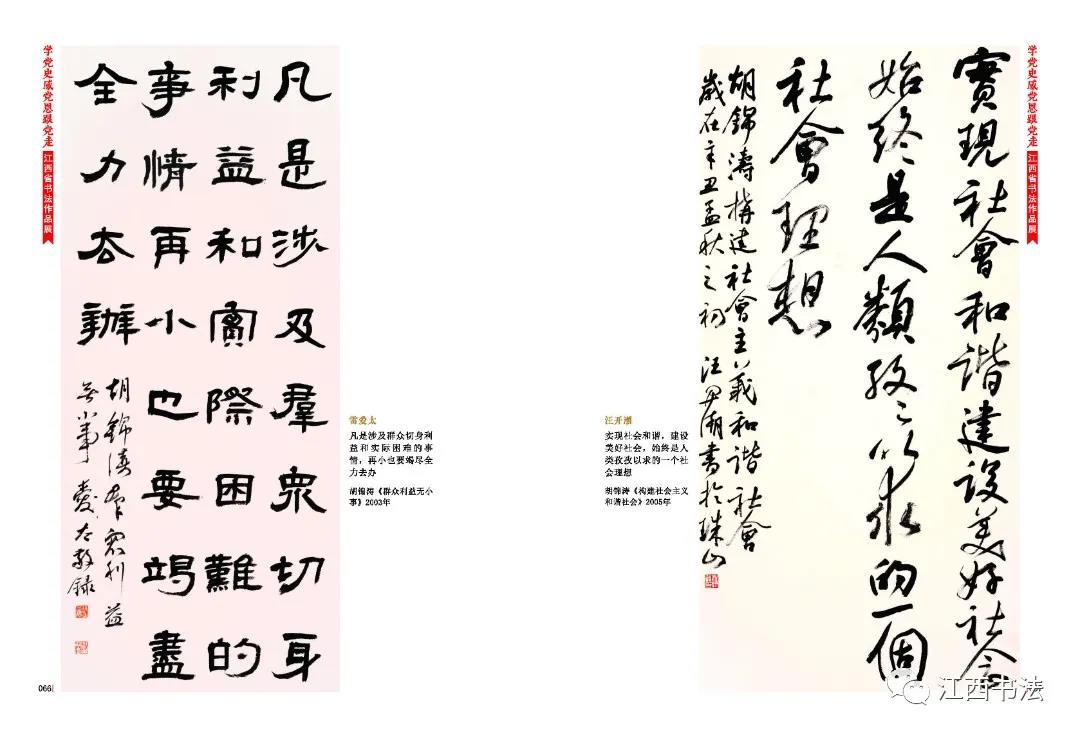 学党史感党恩跟党走
江西省书法作品展
凡是涉及羣衆切身
利益和實際困難的
事情再小也要竭盡
全力去辦
胡錦濤羣衆利益
無小事 愛太敬錄
雷爱太
凡是涉及群众切身利
益和实际困难的事
情，再小也要竭尽全
力去办
胡锦涛《群众利益无小
事》2003年
066
學党史感党恩跟党走
江西省书法作品展
實現社會和谐建设美好社会
始终是人類孜々以求的一個
社會理想
胡錦濤構建社會主義和谐社會
歲在辛丑孟秋之初 汪开潮書於珠山
汪开潮
实现社会和谐，建设
美好社会，始终是人
类孜孜以求的一个社
会理想
胡锦涛《构建社会主义
和谐社会》2005年
江西书法